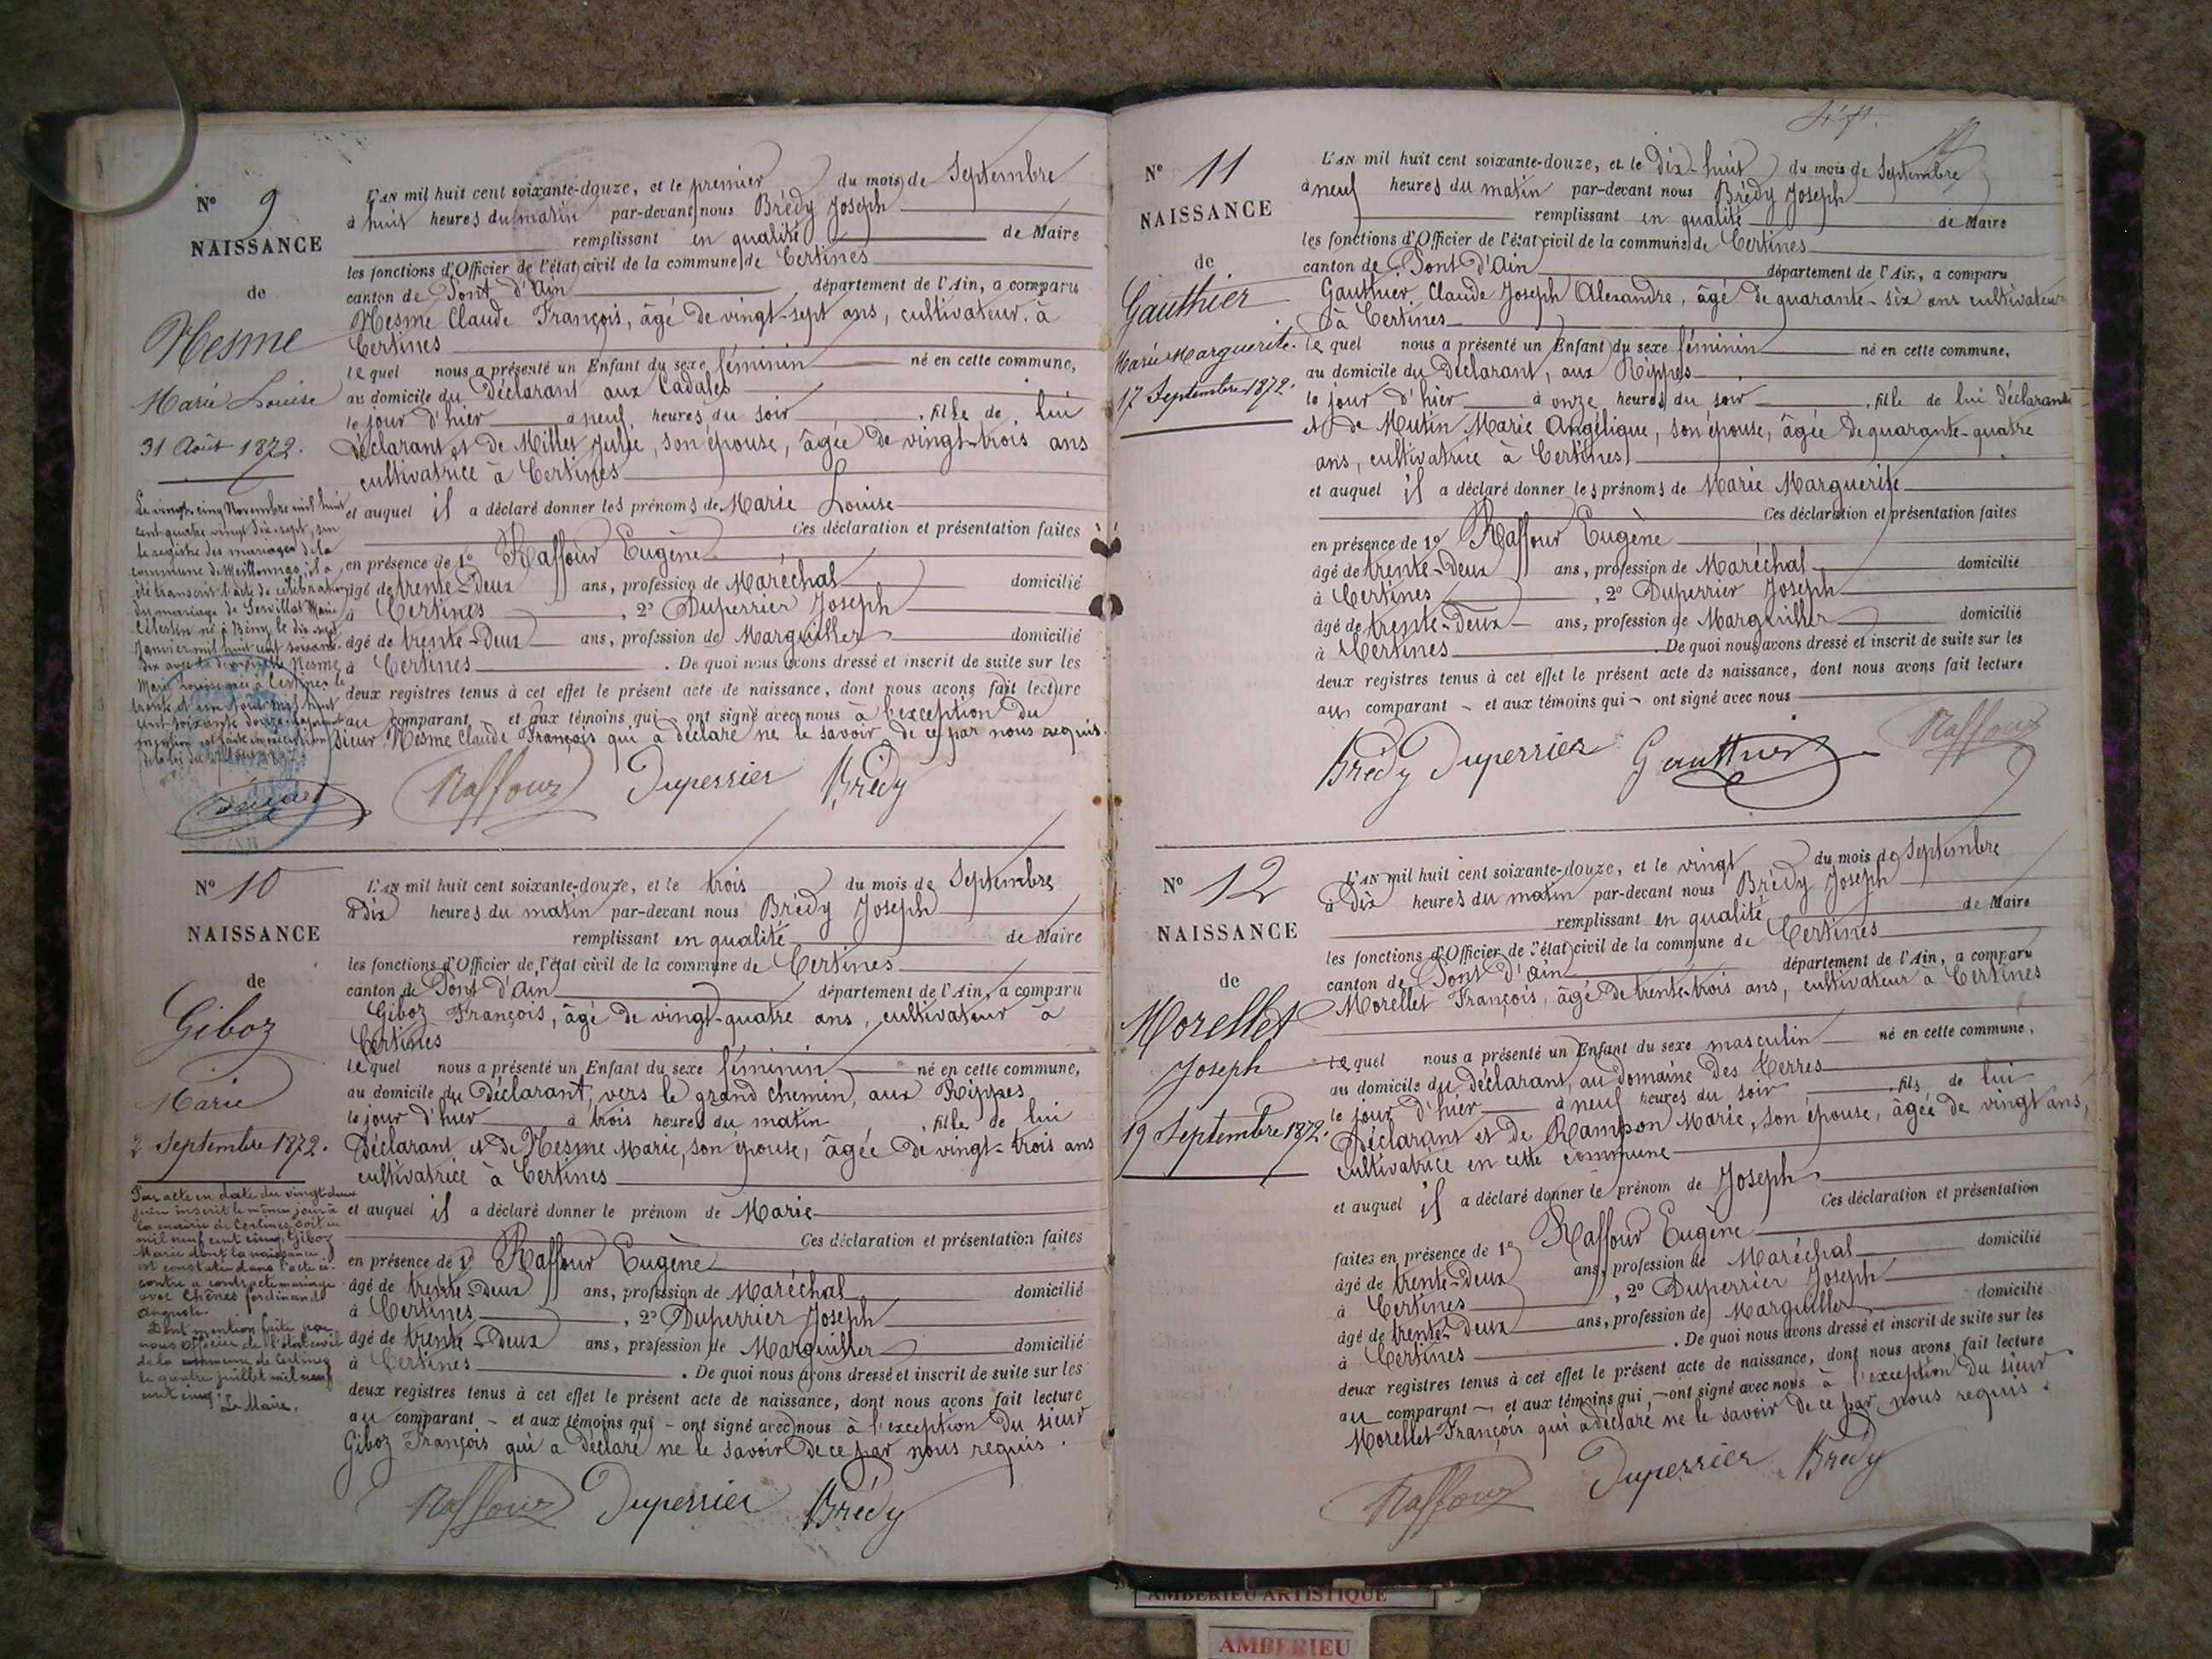 N° 9
NAISSANCE
de
Mesme
Marie Louise
31 Août 1872.
Le vingt-cinq Novembre mil huit
cent quatre vingt dix-sept, sur
le registre des mariages de la
commune de Meillonnas, il a
été transcrit l'acte de célébration
du mariage de Servillat Marie
Célestin né à Bény le dix-sept
Janvier mil huit cent soixante-
dix avec la demoiselle Mesme
Marie Louise née à Certines le
trente et un Août mil huit
cent soixante douze. La présente
mention est faite en exécution
de la loi du
L'AN mil huit cent soixante-douze, et le premier du mois de Septembre
à huit heures du matin par-devant nous Brédy Joseph
remplissant en qualité de Maire
les fonctions d'Officier de l'état civil de la commune de Certines
canton de Pont d'Ain département de l'Ain, a comparu
Mesme Claude François, âgé de vingt-sept ans, cultivateur à
Certines
le quel nous a présenté un Enfant du sexe féminin né en cette commune,
au domicile du Déclarant aux Cadales
le jour d'hier à neuf heures du soir, fille de lui
Déclarant et de Millet Julie, son épouse, âgée de vingt-trois ans
cultivatrice à Certines
et auquel il a déclaré donner les prénoms de Marie Louise
Ces déclaration et présentation faites
en présence de 1° Raffour Eugène
âgé de trente-Deux ans, profession de Maréchal domicilié
à Certines, 2° Duperrier Joseph
âgé de trente-Deux ans, profession de Marguiller domicilié
à Certines. De quoi nous avons dressé et inscrit de suite sur les
deux registres tenus à cet effet le présent acte de naissance, dont nous avons fait lecture
au comparant et aux témoins qui ont signé avec nous à l'exception du
sieur Mesme Claude François qui a déclaré ne le savoir de ce par nous requis.
Raffour Duperrier Brédy
N° 10
NAISSANCE
de
Giboz
Marie
2 Septembre 1872.
Par acte en date du vingt-deux
juin inscrit le même jour à
la mairie de Certines, soit en
mil neuf cent cinq, Giboz
Marie dont la naissance
est constatée dans l'acte ci-
contre a contracté mariage
avec Chênes Ferdinand
Auguste.
Dont mention faite par
nous Officier de l'état civil
de la commune de Certines
le quatre juillet mil neuf
cent cinq. Le Maire,
L'AN mil huit cent soixante-douze, et le trois du mois de Septembre
à Dix heures du matin par-devant nous Brédy Joseph
remplissant en qualité de Maire
les fonctions d'Officier de l'état civil de la commune de Certines
canton de Pont d'Ain département de l'Ain, a comparu
Giboz François, âgé de vingt-quatre ans, cultivateur à
Certines
le quel nous a présenté un Enfant du sexe féminin né en cette commune,
au domicile du Déclarant, vers le grand chemin, aux Rippes
le jour d'hier à trois heures du matin, fille de lui
Déclarant et de Mesme Marie, son épouse, âgée de vingt-trois ans
cultivatrice à Certines
et auquel il a déclaré donner le prénom de Marie
Ces déclaration et présentation faites
en présence de 1° Raffour Eugène
âgé de trente-Deux ans, profession de Maréchal domicilié
à Certines, 2° Duperrier Joseph
âgé de trente-Deux ans, profession de Marguiller domicilié
à Certines. De quoi nous avons dressé et inscrit de suite sur les
deux registres tenus à cet effet le présent acte de naissance, dont nous avons fait lecture
au comparant - et aux témoins qui - ont signé avec nous à l'exception du sieur
Giboz François qui a déclaré ne le savoir de ce par nous requis.
Raffour Duperrier Brédy
N° 11
NAISSANCE
de
Gauthier
Marie Marguerite.
17 Septembre 1872.
L'AN mil huit cent soixante-douze, et le dix-huit du mois de Septembre
à neuf heures du matin par-devant nous Brédy Joseph
remplissant en qualité de Maire
les fonctions d'Officier de l'état civil de la commune de Certines
canton de Pont d'Ain département de l'Ain, a comparu
Gauthier Claude Joseph Alexandre, âgé de quarante-six ans cultivateur
à Certines
le quel nous a présenté un Enfant du sexe féminin né en cette commune,
au domicile du Déclarant, aux Rippes
le jour d'hier à onze heures du soir, fille de lui Déclarant
et de Mutin Marie Angélique, son épouse, âgée de quarante-quatre
ans, cultivatrice à Certines
et auquel il a déclaré donner les prénoms de Marie Marguerite
Ces déclaration et présentation faites
en présence de 1° Raffour Eugène
âgé de trente-Deux ans, profession de Maréchal domicilié
à Certines, 2° Duperrier Joseph
âgé de trente-Deux ans, profession de Marguiller domicilié
à Certines. De quoi nous avons dressé et inscrit de suite sur les
deux registres tenus à cet effet le présent acte de naissance, dont nous avons fait lecture
au comparant - et aux témoins qui - ont signé avec nous
Brédy Duperrier Gauthier Raffour
N° 12
NAISSANCE
de
Morellet
Joseph
19 Septembre 1872.
L'AN mil huit cent soixante-douze, et le vingt du mois de Septembre
à Dix heures du matin par-devant nous Brédy Joseph
remplissant en qualité de Maire
les fonctions d'Officier de l'état civil de la commune de Certines
canton de Pont d'ain département de l'Ain, a comparu
Morellet François, âgé de trente-trois ans, cultivateur à Certines
le quel nous a présenté un Enfant du sexe masculin né en cette commune,
au domicile du déclarant, au domaine des Terres
le jour d'hier à neuf heures du soir, fils de lui
Déclarant et de Rampon Marie, son épouse, âgée de vingt ans,
cultivatrice en cette commune
et auquel il a déclaré donner le prénom de Joseph
Ces déclaration et présentation
faites en présence de 1° Raffour Eugène
âgé de trente-Deux ans, profession de Maréchal domicilié
à Certines, 2° Duperrier Joseph
âgé de trente-Deux ans, profession de Marguiller domicilié
à Certines. De quoi nous avons dressé et inscrit de suite sur les
deux registres tenus à cet effet le présent acte de naissance, dont nous avons fait lecture
au comparant - et aux témoins qui - ont signé avec nous à l'exception du sieur
Morellet François qui a déclaré ne le savoir de ce par nous requis.
Raffour Duperrier Brédy
AMBERIEU ARTISTIQUE
AMBERIEU